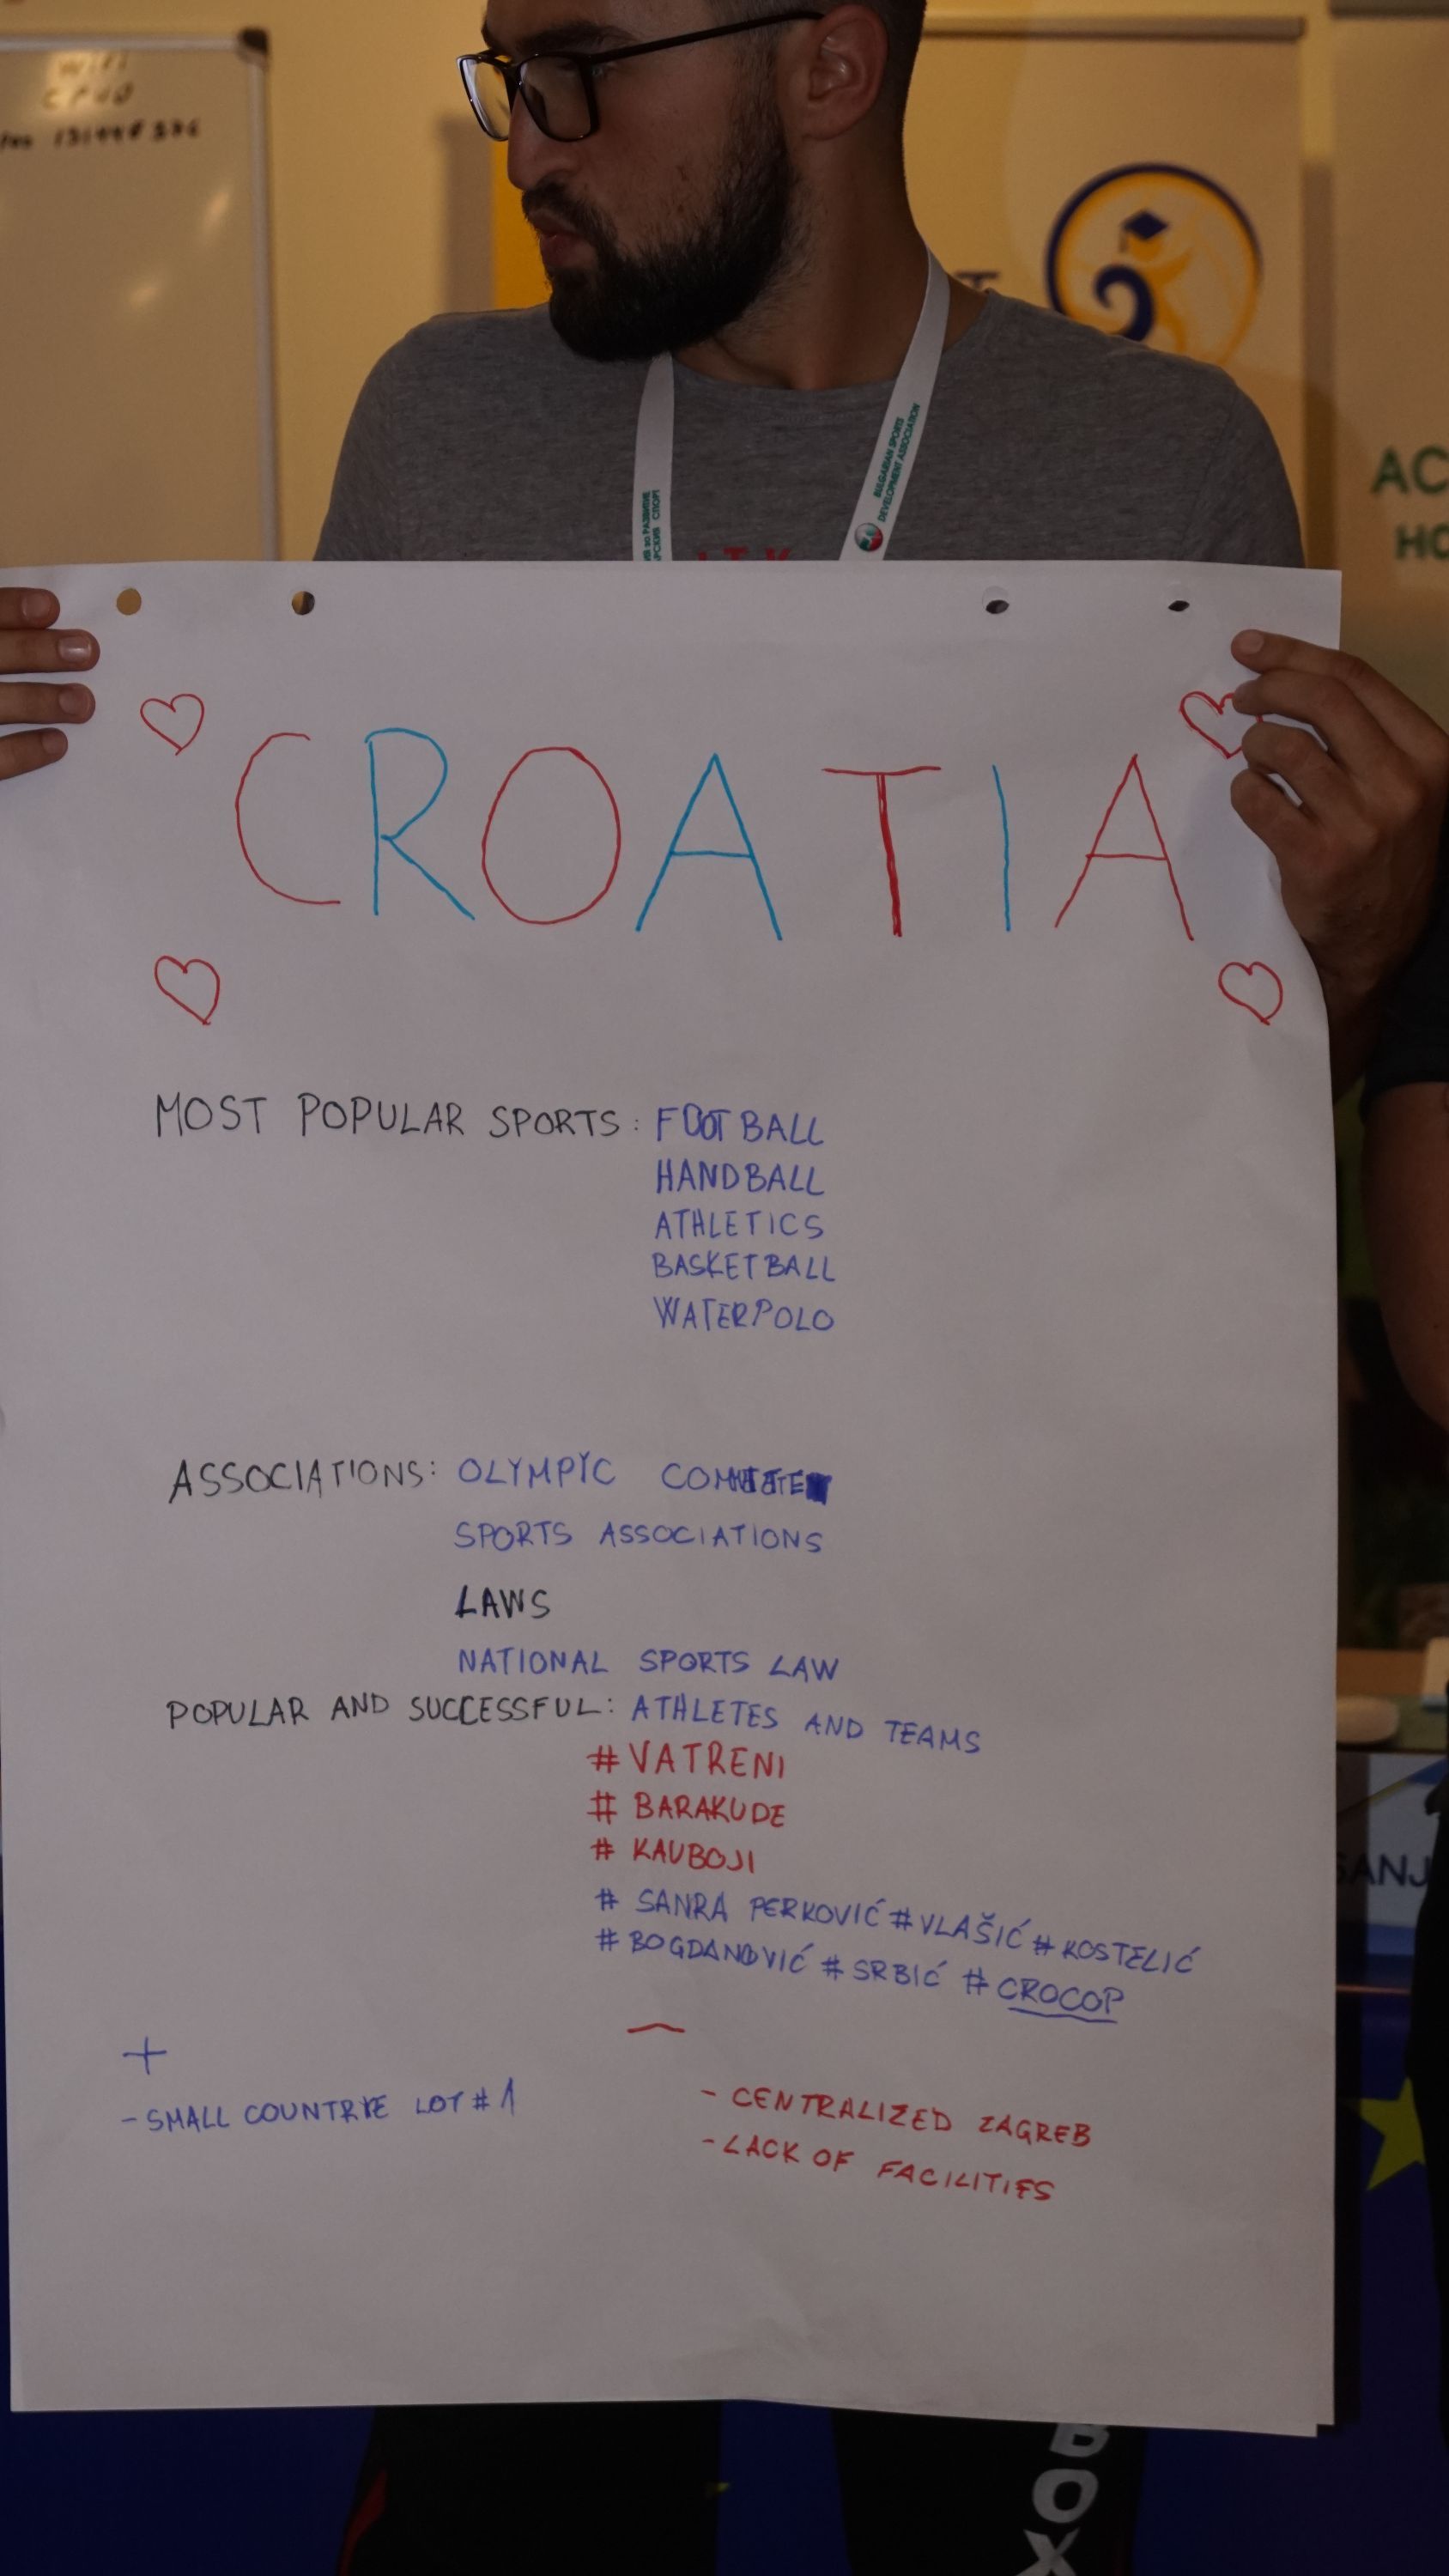 WiFi
CPUO
131440336
BULGARIAN SPORTS
DEVELOPMENT ASSOCIATION
AC
HO
CROATIA
MOST POPULAR SPORTS: FOOTBALL
HANDBALL
ATHLETICS
BASKETBALL
WATERPOLO
ASSOCIATIONS: OLYMPIC
SPORTS ASSOCIATIONS
LAWS
NATIONAL SPORTS LAW
POPULAR AND SUCCESSFUL: ATHLETES AND TEAMS
# VATRENI
# BARAKUDE
# KAUBOJI
# SANRA PERKOVIĆ # VLAŠIĆ # KOSTELIĆ
# BOGDANOVIĆ # SRBIĆ # CROCOP
+
- SMALL COUNTRYE LOT # 1
—
- CENTRALIZED ZAGREB
- LACK OF FACILITIES
SANJ
BOX